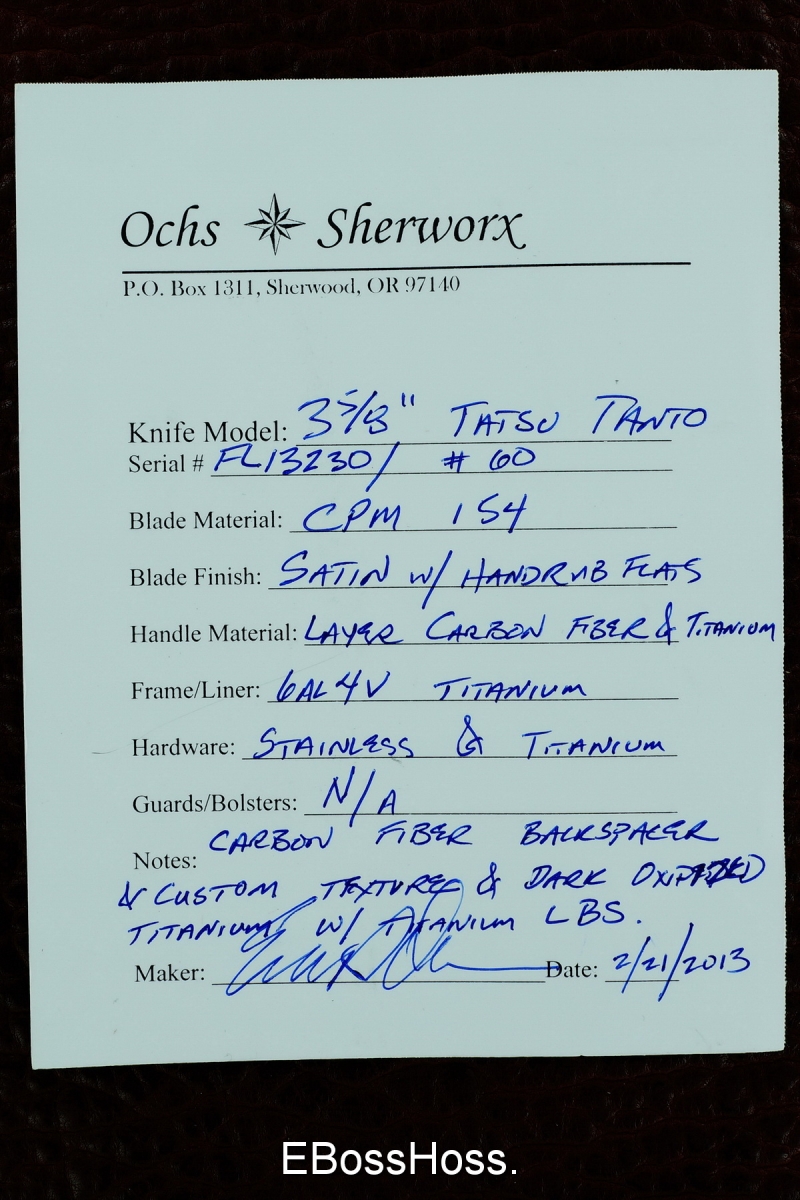 Ochs Sherworx
P.O. Box 1311, Sherwood, OR 97140
Knife Model: 3 5/8" TATSU TANTO
Serial # FL13230 / # 60
Blade Material: CPM 154
Blade Finish: SATIN W/ HANDRUB FLATS
Handle Material: LAYER CARBON FIBER & TITANIUM
Frame/Liner: 6AL4V TITANIUM
Hardware: STAINLESS & TITANIUM
Guards/Bolsters: N/A
Notes: CARBON FIBER BACKSPACER
& CUSTOM TEXTURED & DARK OXIDIZED
TITANIUM W/ TITANIUM LBS.
Maker: Date: 2/21/2013
EBossHoss.